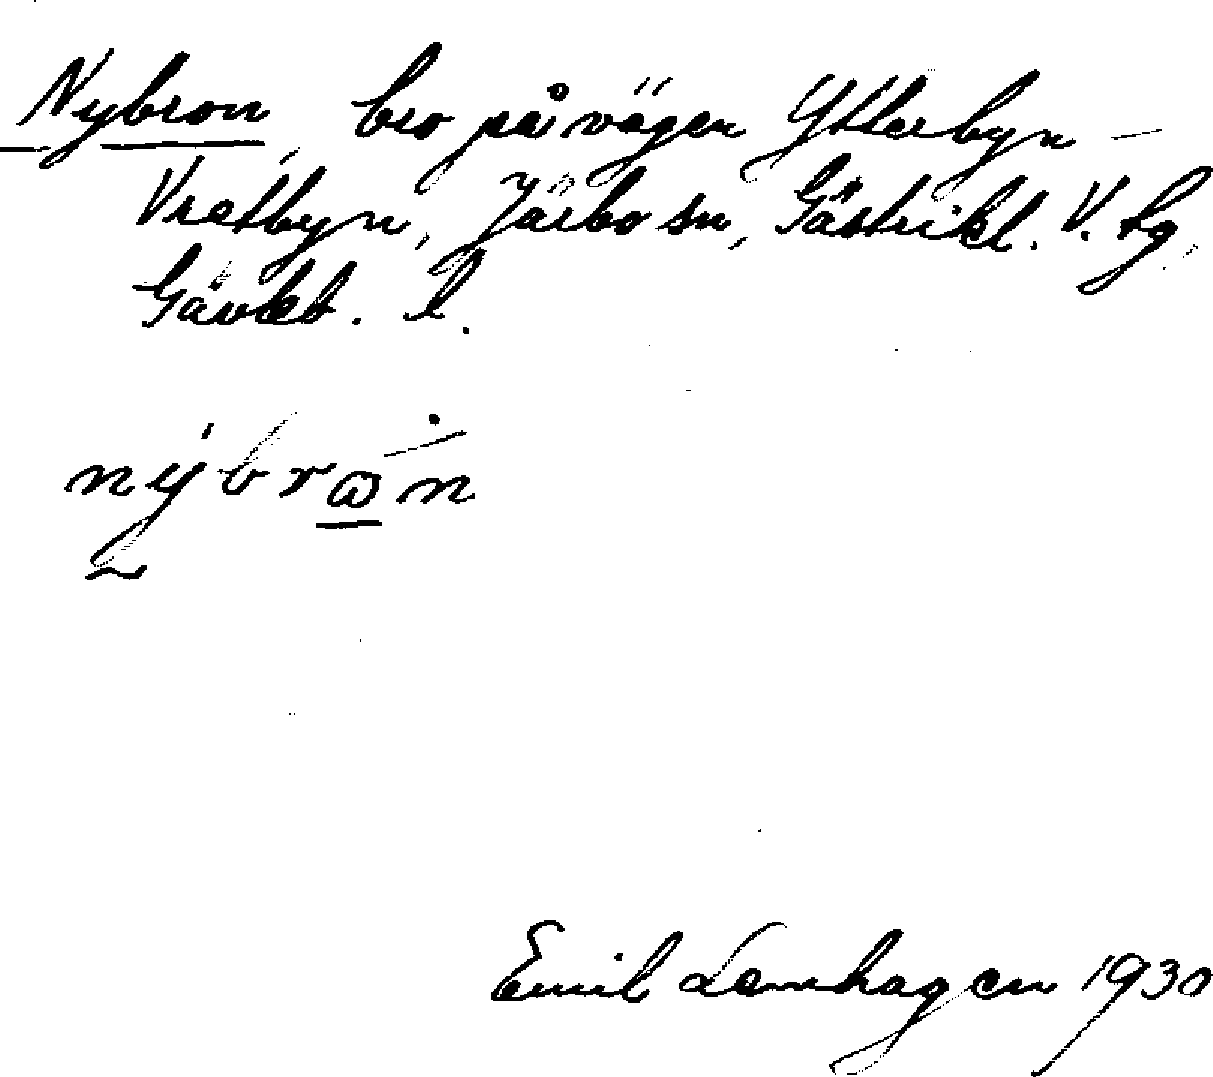 Nybron, bro på vägen Ytterbyn –
Vretbyn, Järbo sn, Gästrikl. V. tg,
Gävleb. l.
nybrω̲n
Emil Lennhagen 1930